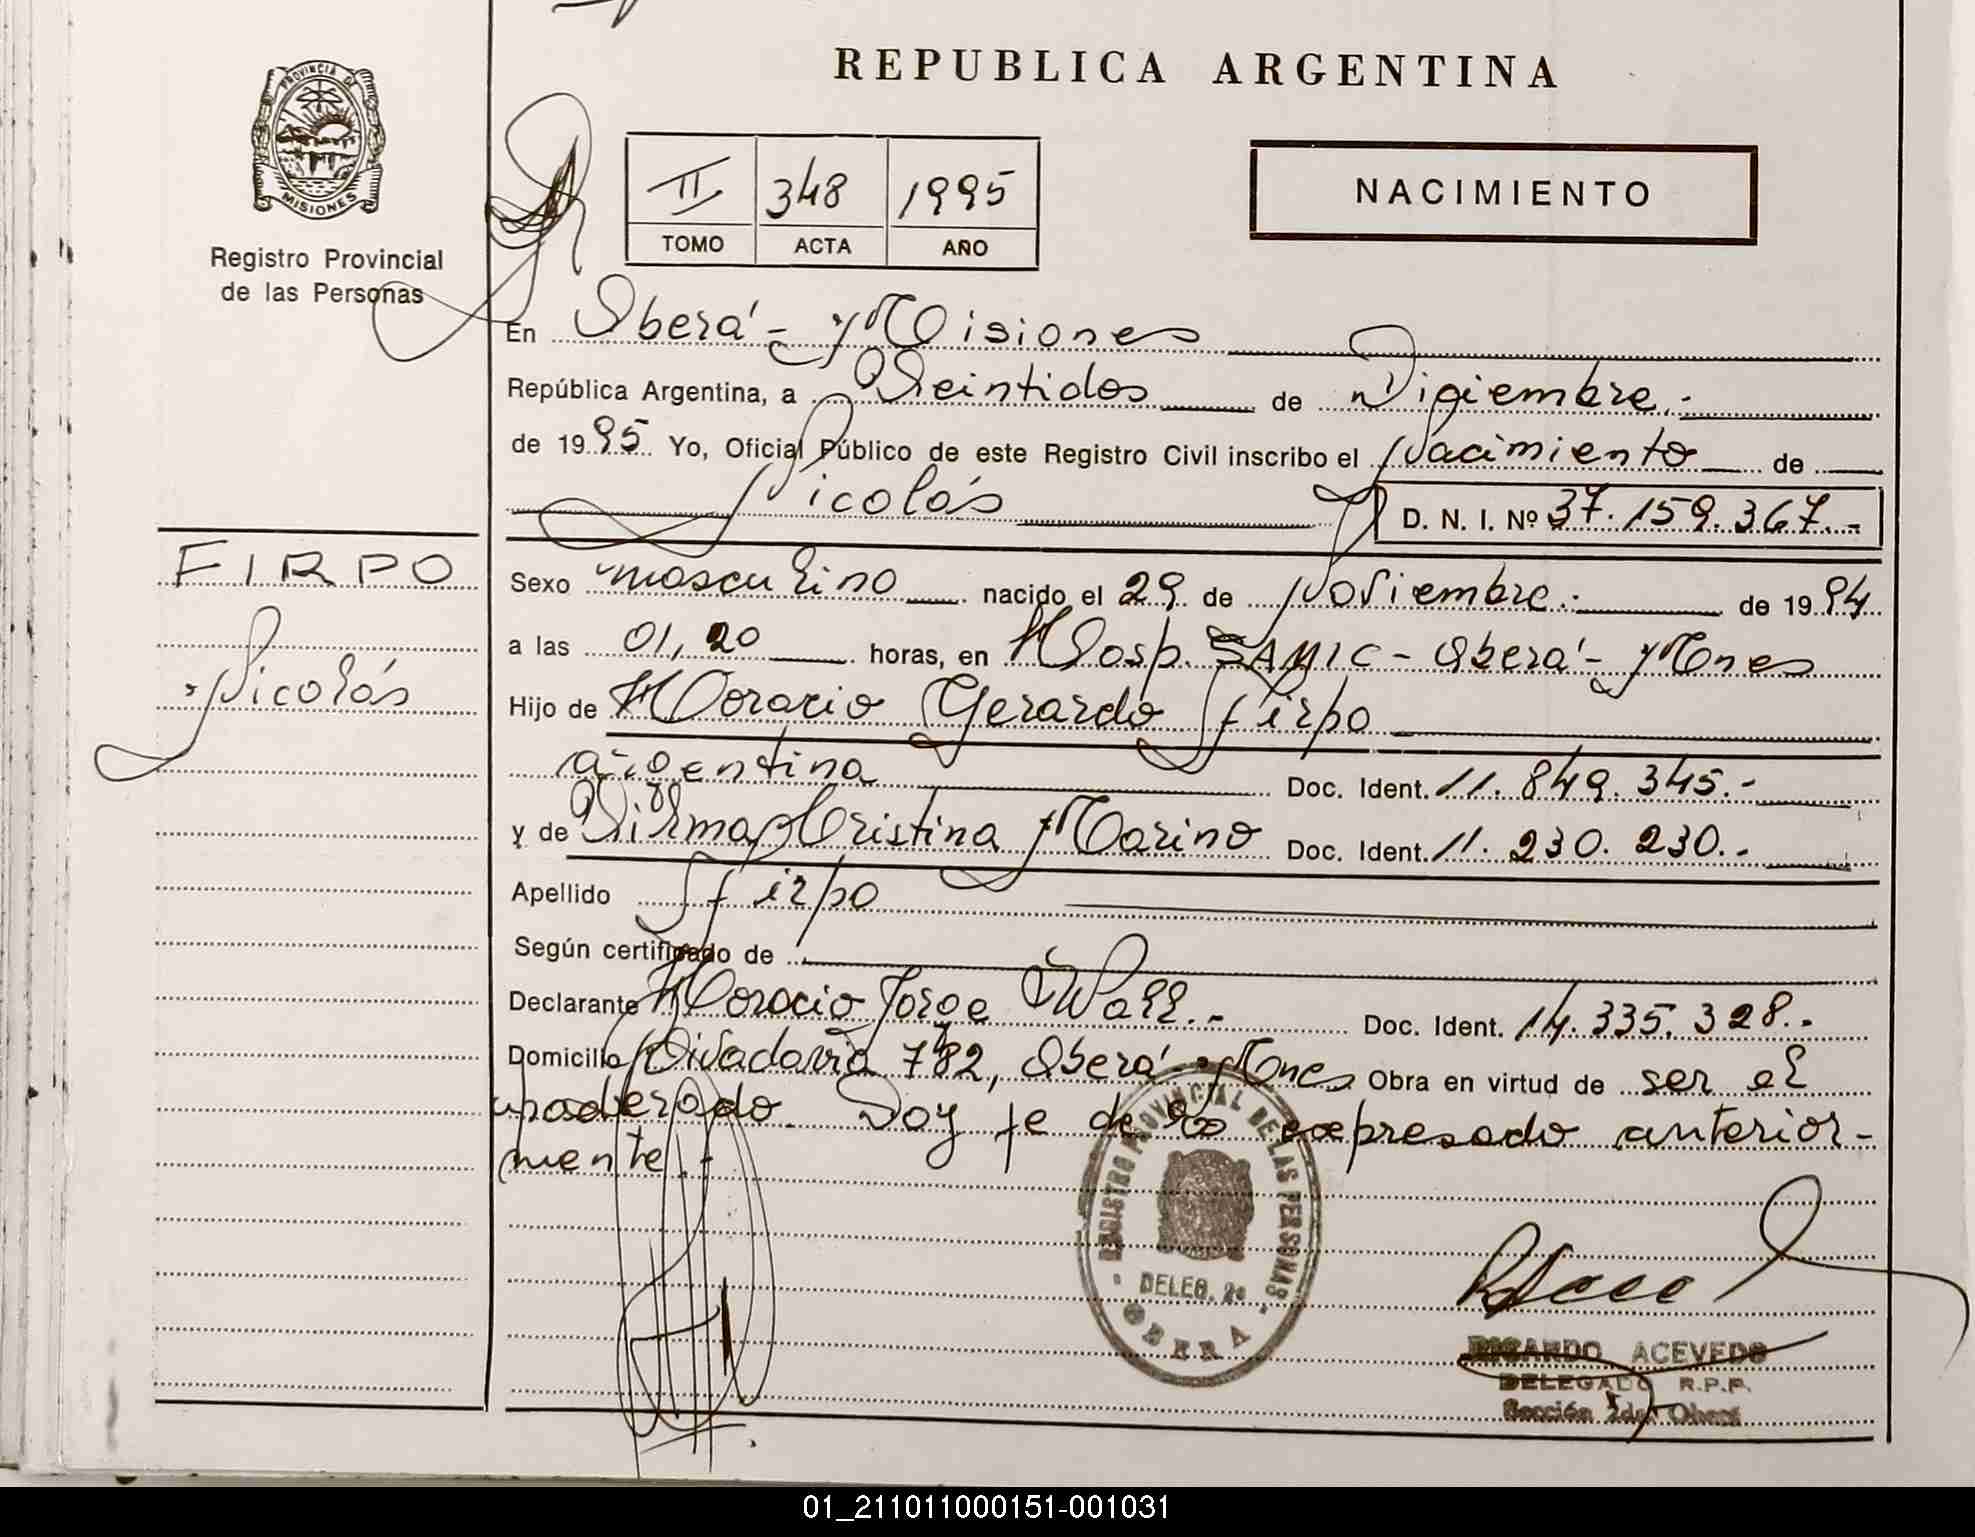 REPUBLICA ARGENTINA
PROVINCIA DE
MISIONES
Registro Provincial
de las Personas
II 348 1995
TOMO ACTA AÑO
NACIMIENTO
En Oberá - Misiones
República Argentina, a Veintidos de Diciembre.-
de 1995 Yo, Oficial Público de este Registro Civil inscribo el Nacimiento de
Nicolás D. N. I. Nº 37.159.367.-
FIRPO
Nicolás
Sexo masculino nacido el 29 de Noviembre.- de 1994
a las 01,20 horas, en Hosp. SAMIC - Oberá - Mnes
Hijo de Horacio Gerardo Firpo
argentina Doc. Ident. 11.849.345.-
y de Vilma Cristina Marino Doc. Ident. 11.230.230.-
Apellido Firpo
Según certificado de
Declarante Horacio Jorge Wall.- Doc. Ident. 14.335.328.-
Domicilio Rivadavia 782, Oberá - Mnes Obra en virtud de ser el
apoderado. Doy fe de lo expresado anterior-
mente.-
REGISTRO PROVINCIAL DE LAS PERSONAS
DELEG. 2ª
OBERA
RICARDO ACEVEDO
DELEGADO R.P.P.
Sección 2da. Oberá
01_211011000151-001031